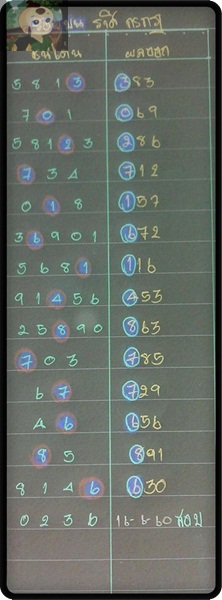 5 8 1 3 383
7 0 1 069
5 8 1 2 3 286
7 3 4 712
0 1 8 157
3 6 9 0 1 672
5 6 8 1 116
9 1 4 5 6 453
2 5 8 9 0 863
7 0 3 785
6 7 729
4 6 656
8 5 891
8 1 4 6 630
0 2 3 6 16-6-60